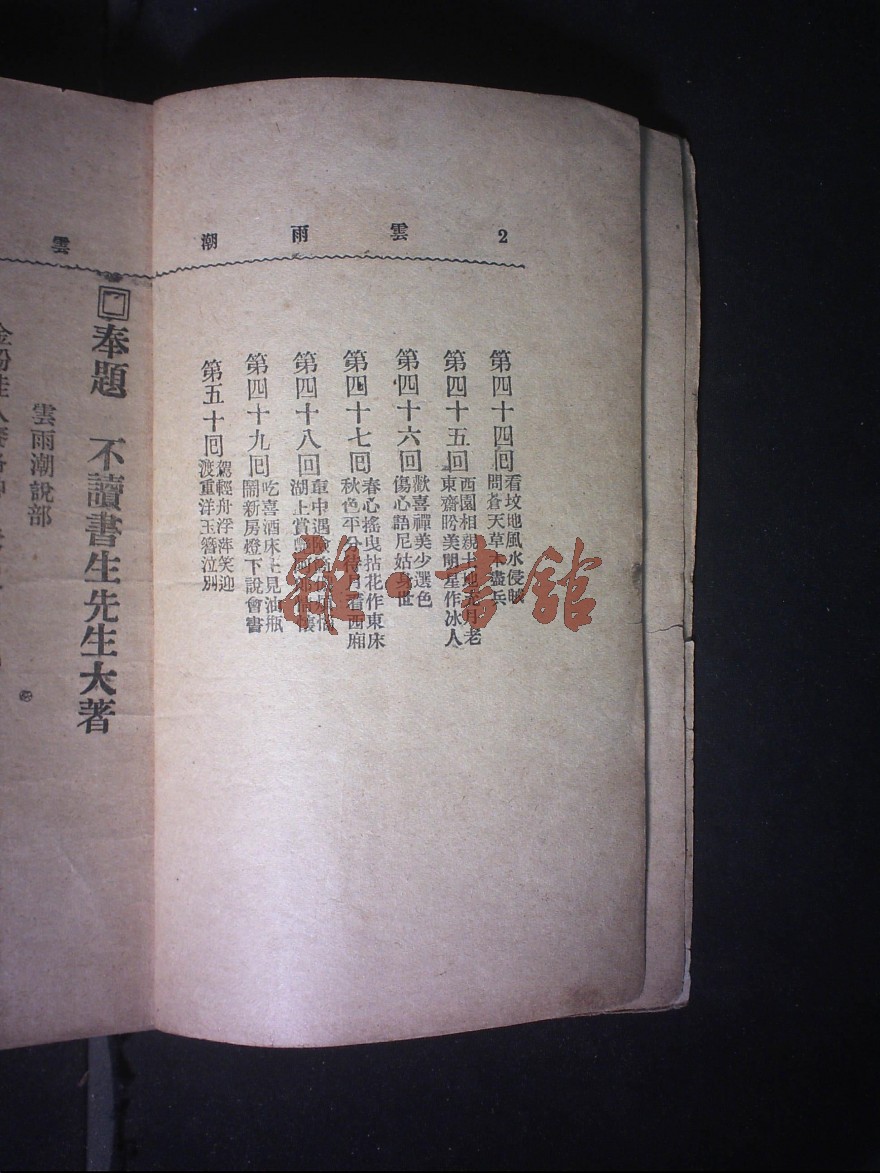 2 雲雨潮
第四十四回 看坟地風水侵 問蒼天草木盡兵
第四十五回 西園相親 月老 東齋盻美明星作冰人
第四十六回 歡喜禪美少選色 傷心語尼姑身世
第四十七回 春心搖曳拈花作東床 秋色平分待月看西廂
第四十八回 車中遇險 湖上賞
第四十九回 吃喜酒床上見油瓶 鬧新房燈下說會書
第五十回 駕輕舟浮萍笑迎 渡重洋玉簪泣別
雲
奉題 不讀書生先生大著
雲雨潮說部
雜·書館